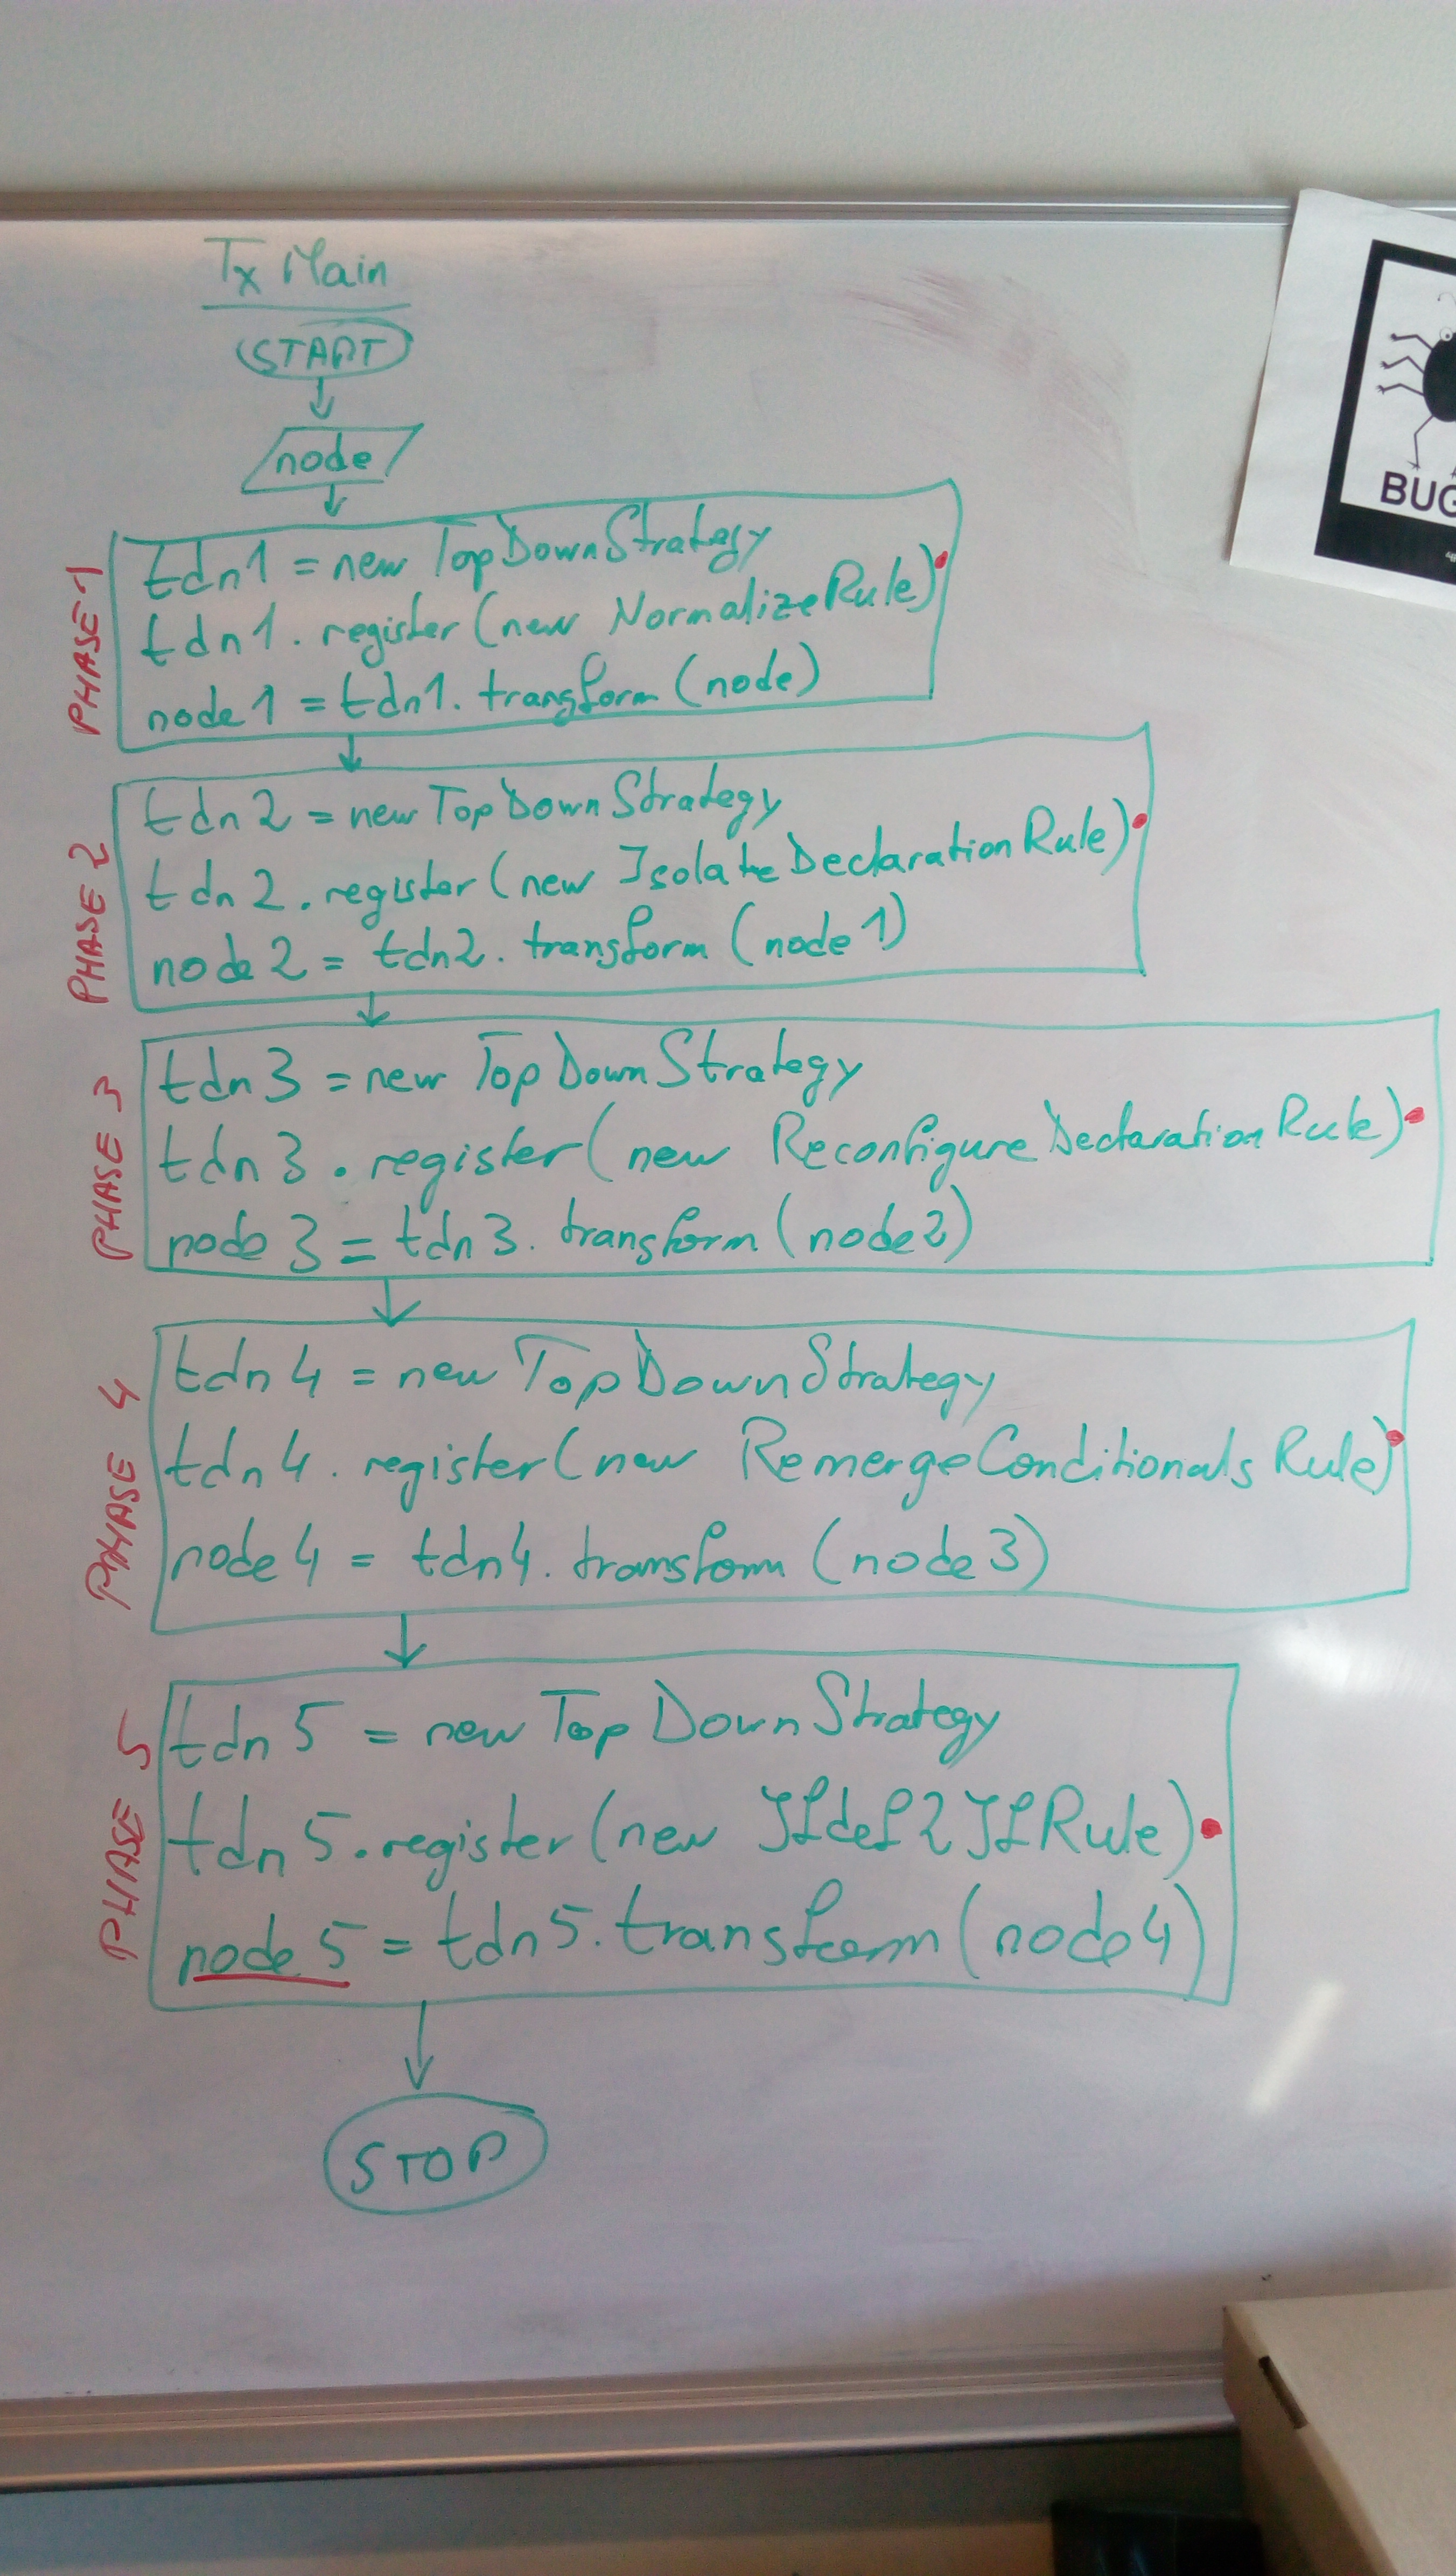 Tx Main
START
node
PHASE 1
tdn1 = new TopDownStrategy
tdn1.register(new NormalizeRule)
node1 = tdn1.transform(node)
PHASE 2
tdn2 = new TopDownStrategy
tdn2.register(new IsolateDeclarationRule)
node2 = tdn2.transform(node1)
PHASE 3
tdn3 = new TopDownStrategy
tdn3.register(new ReconfigureDeclarationRule)
node3 = tdn3.transform(node2)
PHASE 4
tdn4 = new TopDownStrategy
tdn4.register(new RemergeConditionalsRule)
node4 = tdn4.transform(node3)
PHASE 5
tdn5 = new TopDownStrategy
tdn5.register(new Ifdef2IfRule)
node5 = tdn5.transform(node4)
STOP
BUG